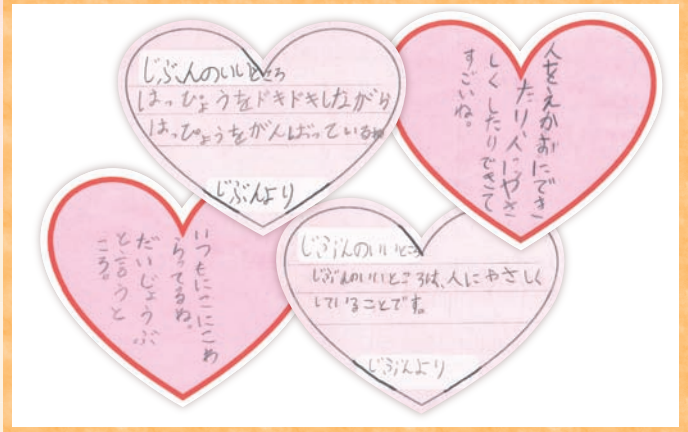 じぶんのいいところ
はっぴょうをドキドキしながら
はっぴょうをがんばっているね
じぶんより
人をえがおにでき
たり、人にやさ
しくしたりできて
すごいね。
いつもにこにこわ
らってるね。
だいじょうぶ
と言うと
ころ。
じぶんのいいところ
じぶんのいいところは、人にやさしく
していることです。
じぶんより